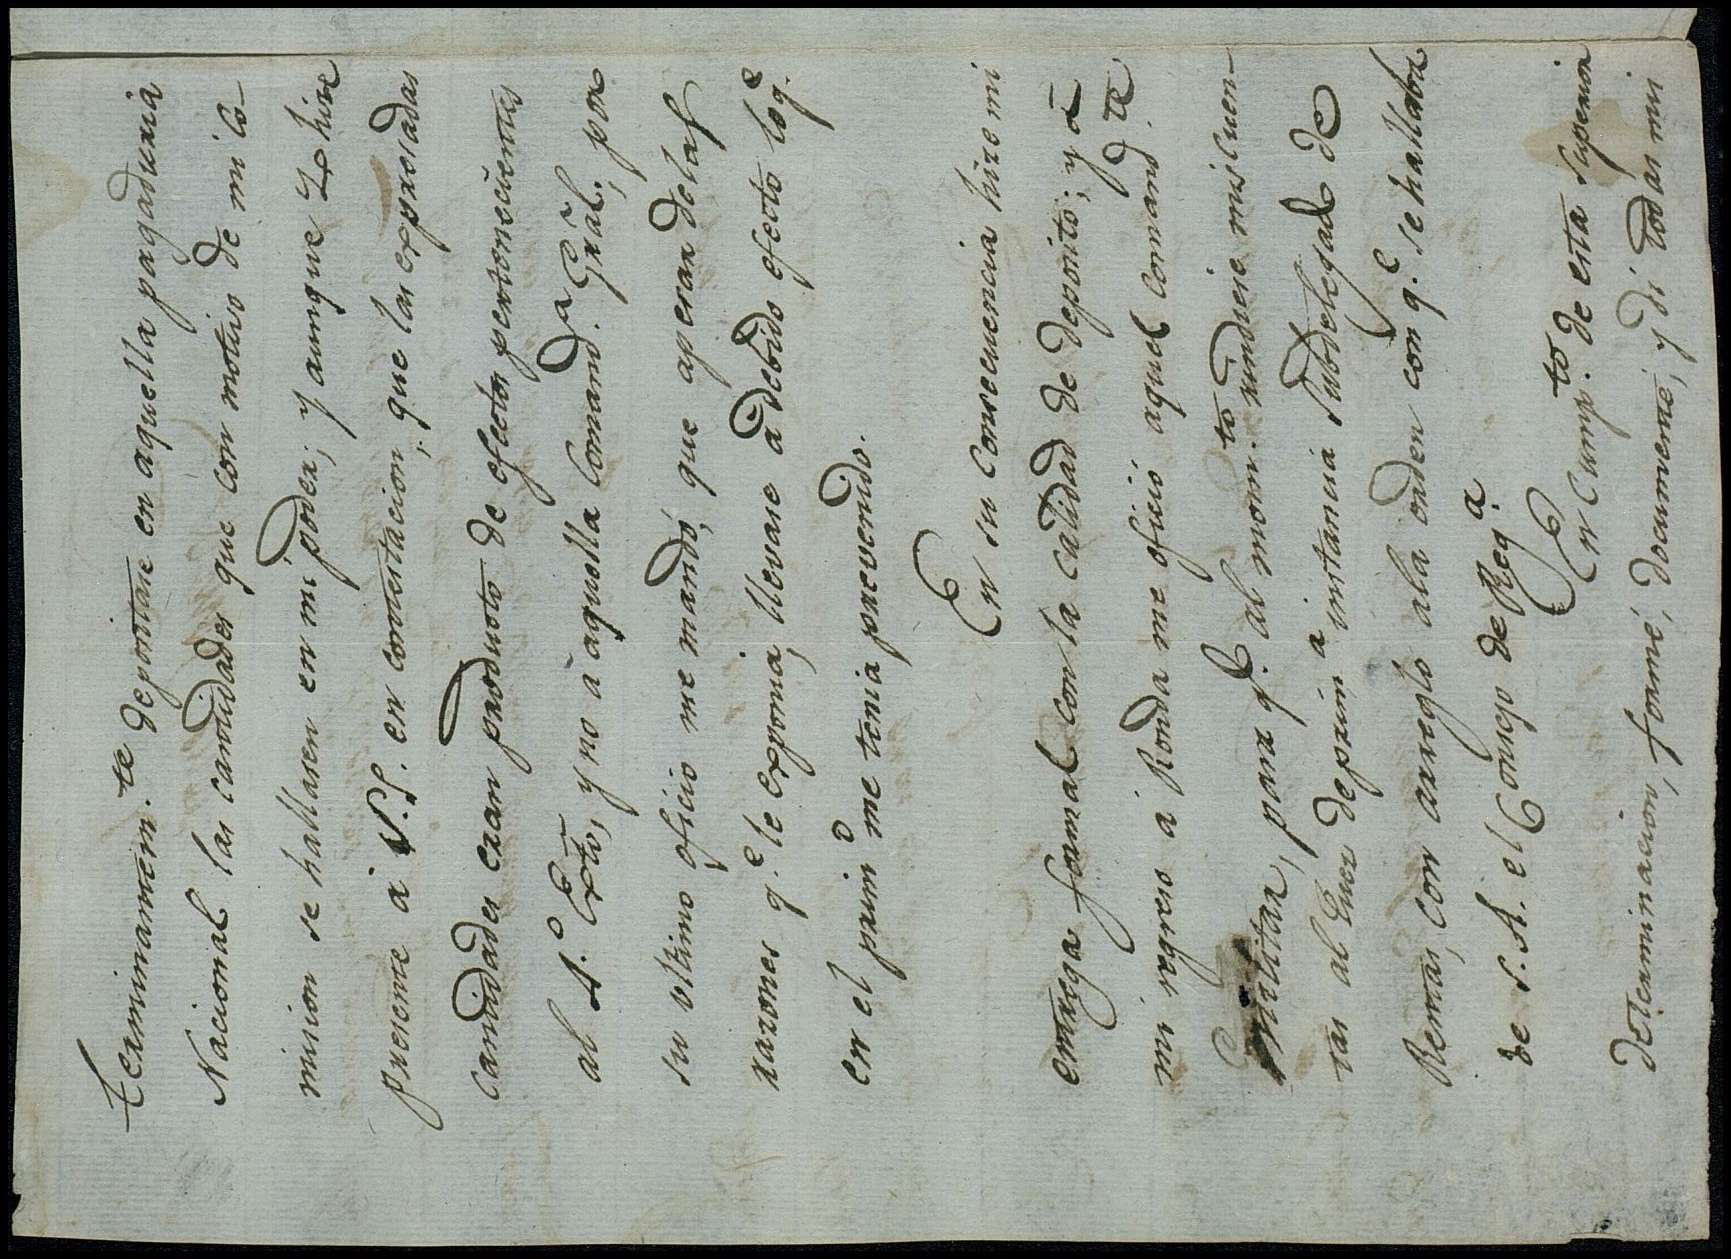 terminantem.te depositase en aquella pagaduria
Nacional las cantidades que con motivo de mi co-
mision se hallasen en mi poder; y aunque hice
presente à V.S. en contestacion, que las expresadas
cantidades eran producto de efectos pertenecientes
al 4.º Exto, y no à aquella Comand.a Gral; por
su ultimo oficio me mandó, que apesar de las
razones q.e le exponia, llevase à debido efecto lo q.e
en el prim.o me tenia prevenido.
En su consecuencia hize mi
entrega formal con la calidad de deposito; y à
mi regreso à Ronda me ofició aquel Comand.te
militar, para q.e al mom.to rindiese mis cuen-
tas al Juez de prim.a instancia Subdelegado de
Rentas, con arreglo ala orden con q.e se hallaba
de S. A. el Consejo de Reg.a
En Cump.to de esta superior
determinacion, formé, documenté, y dí todas mis